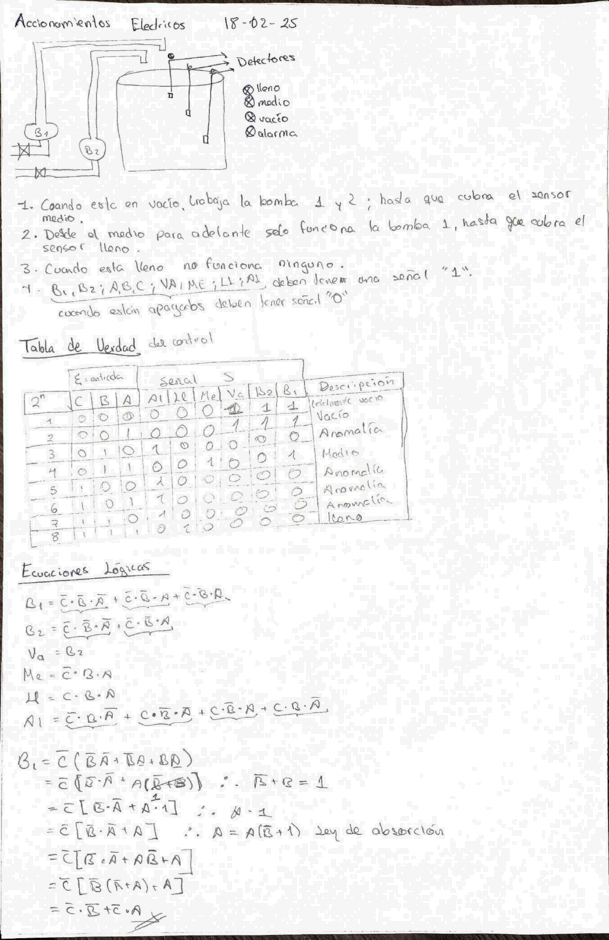 Accionamientos Electricos 18-02-25
Detectores
lleno
medio
vacío
alarma
B1
B2
1. Cuando este en vacío, trabaja la bomba 1 y 2; hasta que cubra el sensor
medio.
2. Desde el medio para adelante solo funciona la bomba 1, hasta que cubra el
sensor lleno.
3. Cuando esta lleno no funciona ninguno.
4. B1, B2; A,B,C; VA; ME; LL; Al deben tener una señal "1".
cuando están apagados deben tener señal "0"
Tabla de Verdad del control
Entrada señal S
2ⁿ C B A Al Ll Me Va B2 B1 Descripción
1 0 0 0 0 0 0 1 1 1 vacio
2 0 0 1 0 0 0 1 1 1 Vacío
3 0 1 0 1 0 0 0 0 0 Anomalía
4 0 1 1 0 0 1 0 0 1 Medio
5 1 0 0 1 0 0 0 0 0 Anomalía
6 1 0 1 1 0 0 0 0 0 Anomalía
7 1 1 0 1 0 0 0 0 0 Anomalía
8 1 1 1 0 1 0 0 0 0 lleno
Ecuaciones Lógicas
B1 = C̅·B̅·A̅ + C̅·B̅·A + C̅·B·A
B2 = C̅·B̅·A̅ + C̅·B̅·A
Va = B2
Me = C̅·B·A
Ll = C·B·A
Al = C̅·B·A̅ + C·B̅·A̅ + C·B̅·A + C·B·A̅
B1 = C̅ (B̅A̅ + B̅A + BA)
= C̅ [B̅·A̅ + A(B̅+B)] ∴ B̅+B = 1
= C̅ [B̅·A̅ + A·1] ∴ A·1
= C̅ [B̅·A̅ + A] ∴ A = A(B̅+1) Ley de absorción
= C̅ [B̅·A̅ + AB̅ + A]
= C̅ [B̅(A̅+A) + A]
= C̅·B̅ + C̅·A